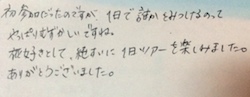 初参加だったのですが、1日で誰かをみつけるのって
やっぱりむずかしいですね。
旅好きとして、純すいに1日ツアーを楽しみました。
ありがとうございました。